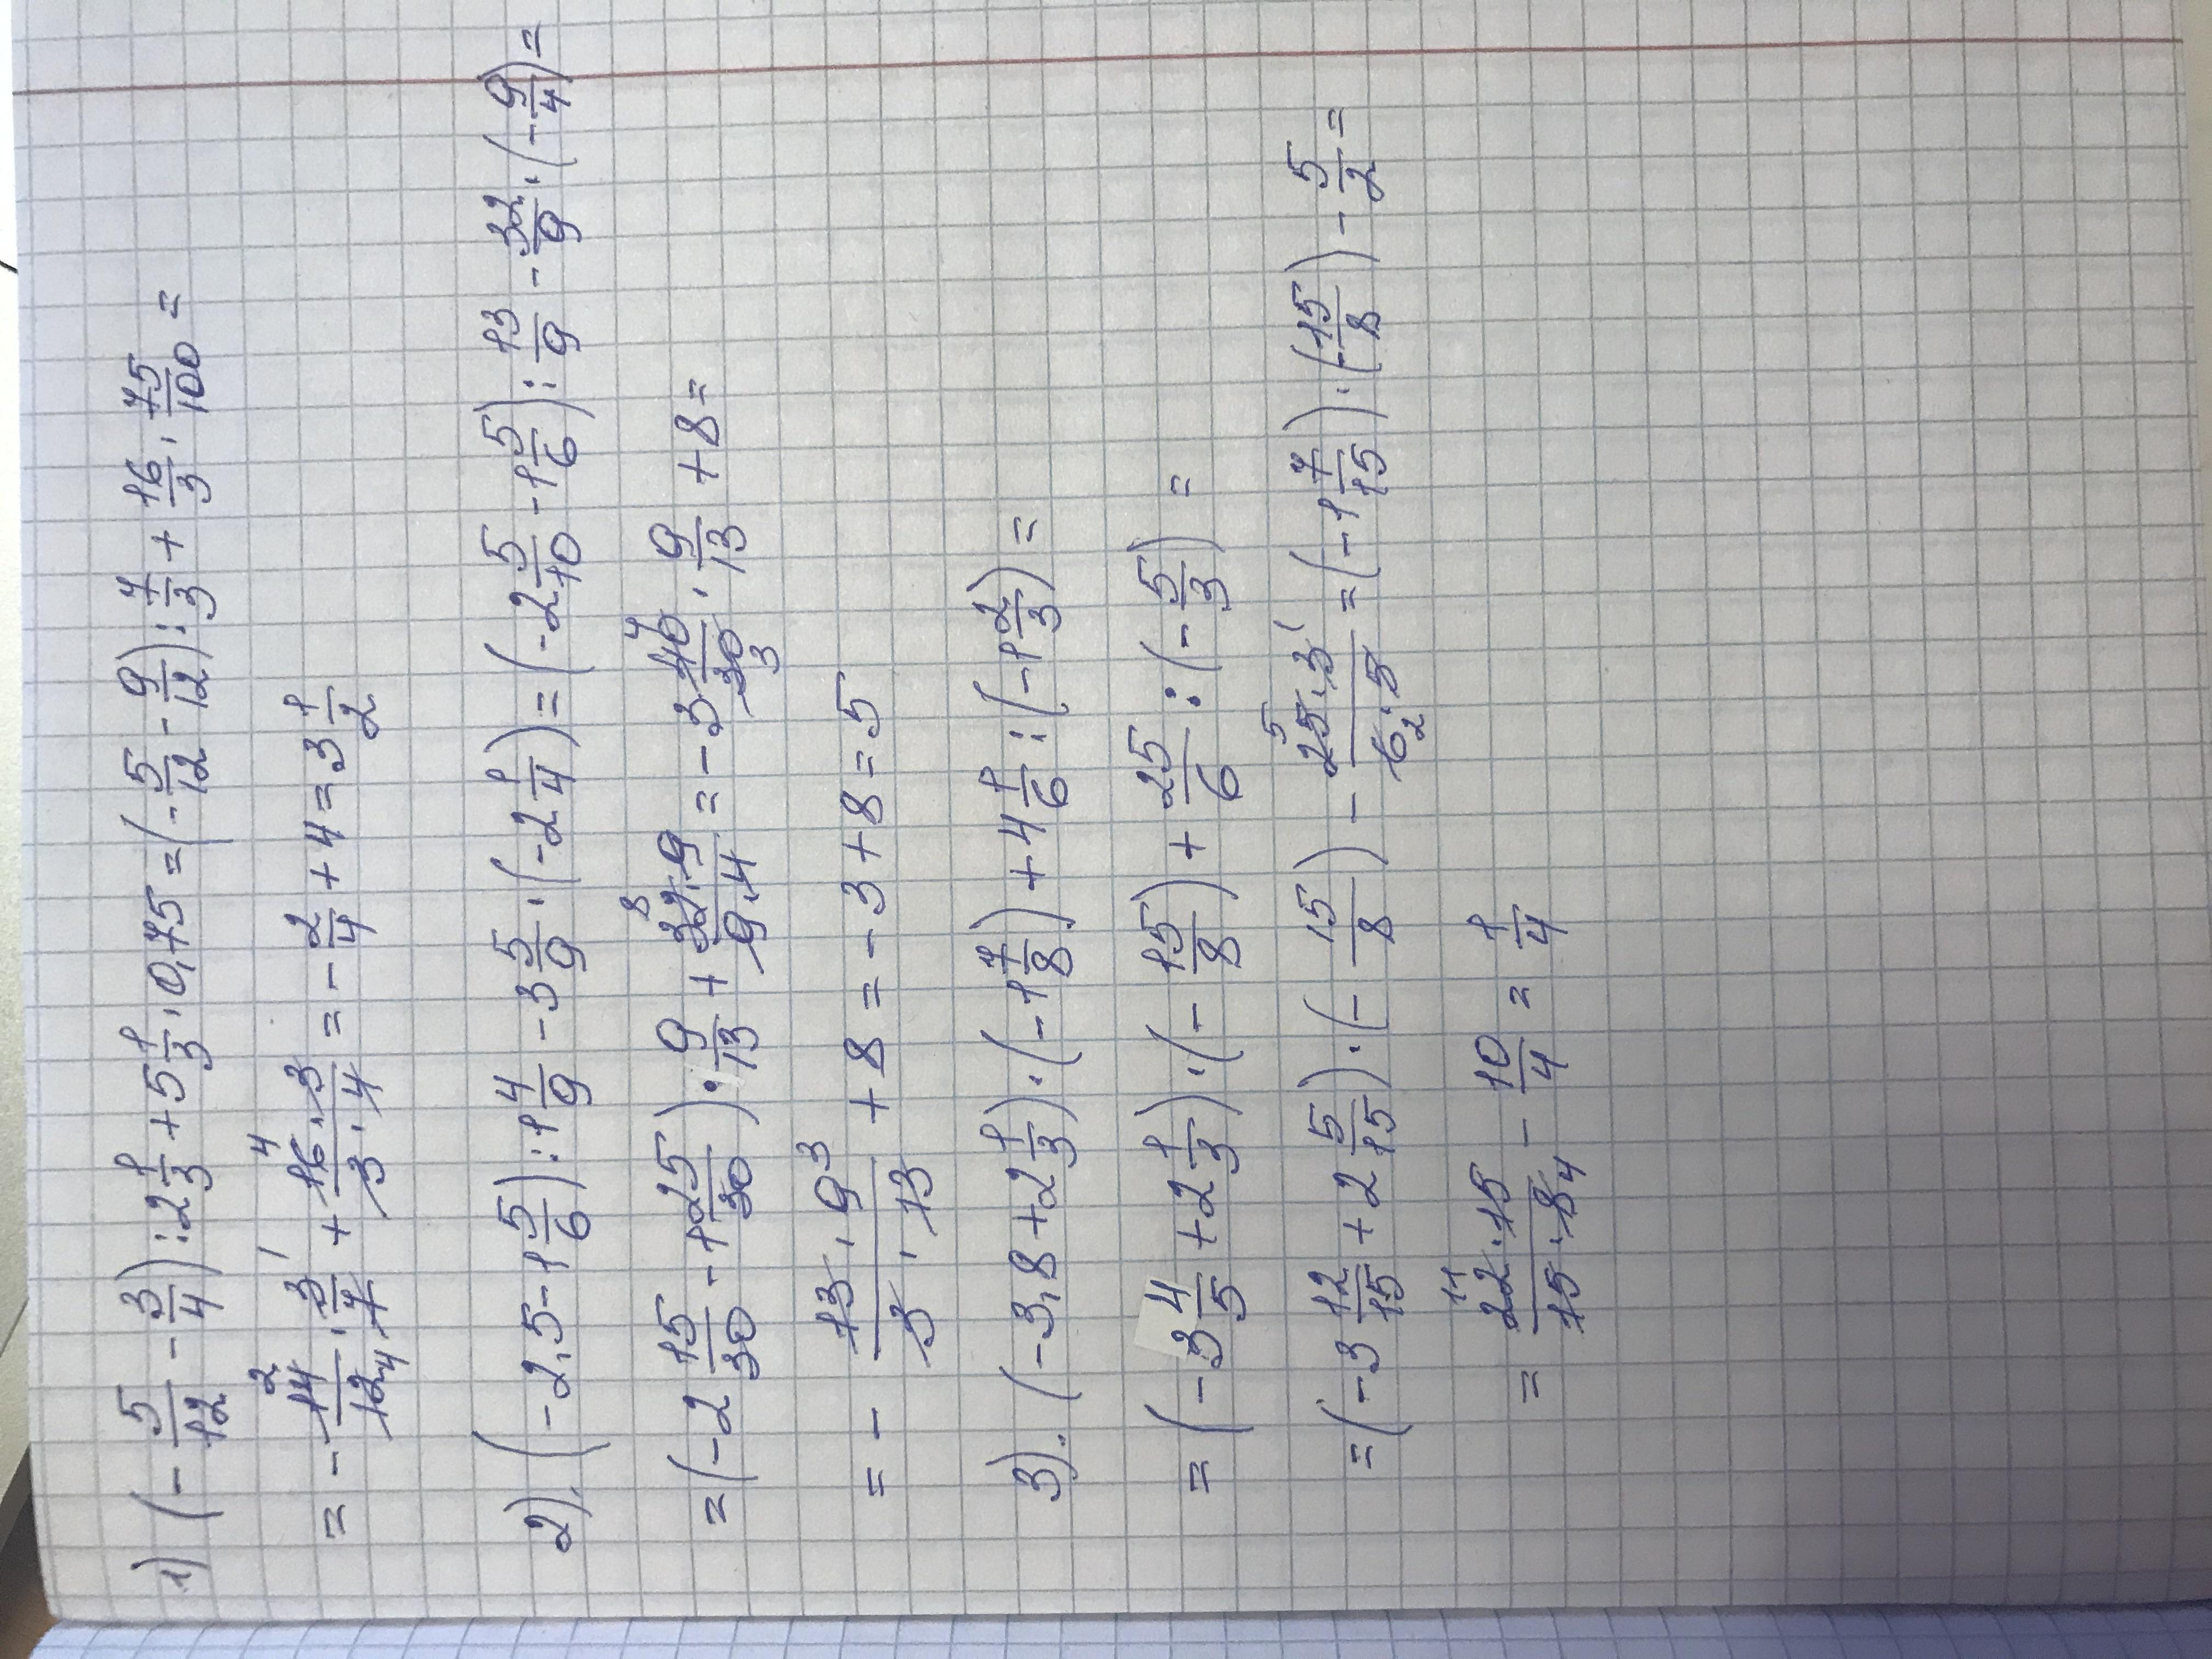 1) (-5/12 - 3/4) : 2 1/3 + 5 1/3 · 0,75 = (-5/12 - 9/12) : 7/3 + 16/3 · 75/100 =
= - 14 2/12 4 · 3 1/7 + 16 4 · 3/3 · 4 = - 2/4 + 4 = 3 1/2
2). (-2,5 - 1 5/6) : 1 4/9 - 3 5/9 · (-2 1/4) = (-2 5/10 - 1 5/6) : 13/9 - 32/9 · (-9/4) =
= (-2 15/30 - 1 25/30) · 9/13 + 32 8 · 9/9 · 4 = -3 40 4/30 3 · 9/13 + 8 =
= - 13 · 9 3/3 · 13 + 8 = -3 + 8 = 5
3). (-3,8 + 2 1/3) · (-1 7/8) + 4 1/6 : (-1 2/3) =
= (-3 4/5 + 2 1/3) · (-15/8) + 25/6 : (-5/3) =
= (-3 12/15 + 2 5/15) · (-15/8) - 25 5 · 3 1/6 2 · 5 = (-1 7/15) · (-15/8) - 5/2 =
= 22 11 · 15/15 · 8 4 - 10/4 = 1/4